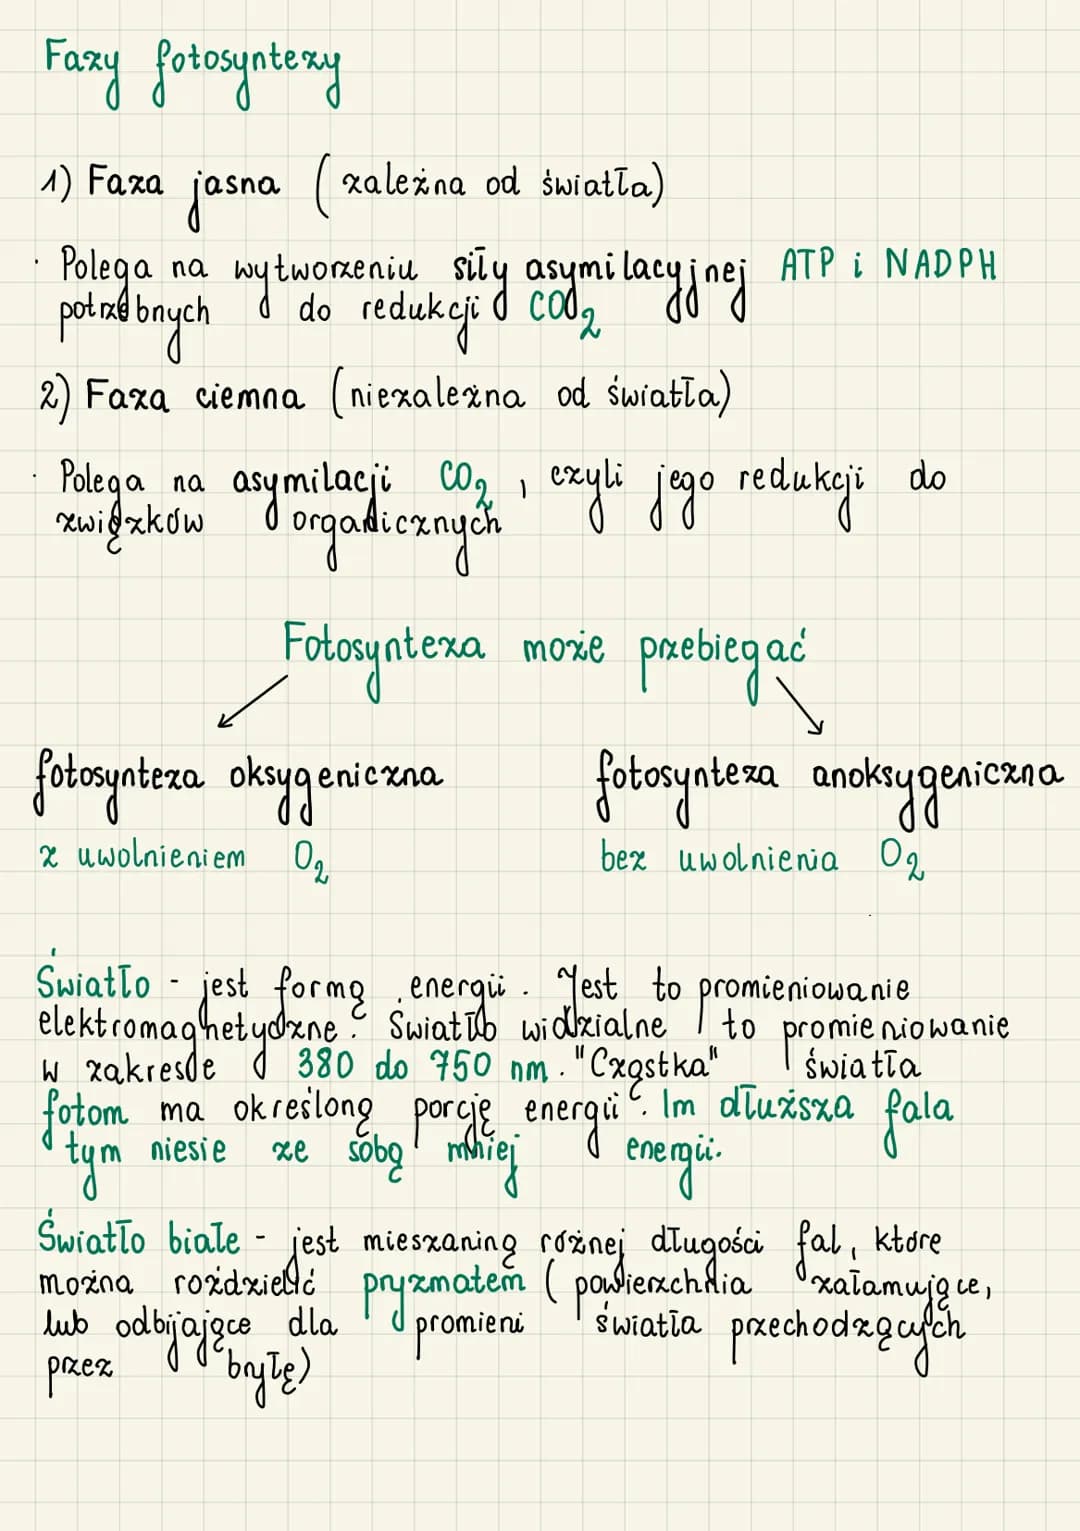 Fazy fotosyntezy
1) Faza jasna (zależna od światła)
· Polega na wytworzeniu siły asymilacyjnej ATP i NADPH
potrzebnych do redukcji CO₂
2) Faza ciemna (niezależna od światła)
· Polega na asymilacji CO₂, czyli jego redukcji do
związków organicznych
Fotosynteza może przebiegać
fotosynteza oksygeniczna
z uwolnieniem O₂
fotosynteza anoksygeniczna
bez uwolnienia O₂
Światło - jest formą energii. Jest to promieniowanie
elektromagnetydzne. Światło widzialne to promieniowanie
w zakresie 380 do 750 nm. "Cząstka" światła
fotom ma określoną porcję energii. Im dłuższa fala
tym niesie ze sobą mniej energii.
Światło białe - jest mieszaniną różnej długości fal, które
można roździelić pryzmatem (powierzchnia załamujące,
lub odbijające dla promieni światła przechodzących
przez bryłę)